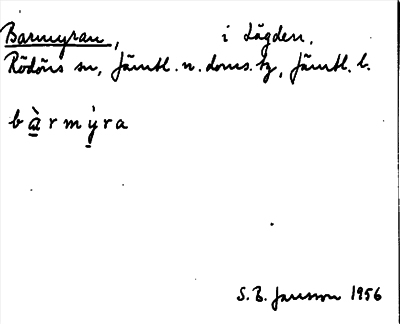 Barmyran, i Lägden,
Rödöns sn, Jämtl. n. doms. tg, Jämtl. l.
bàrmỳra
S. B. Jansson 1956